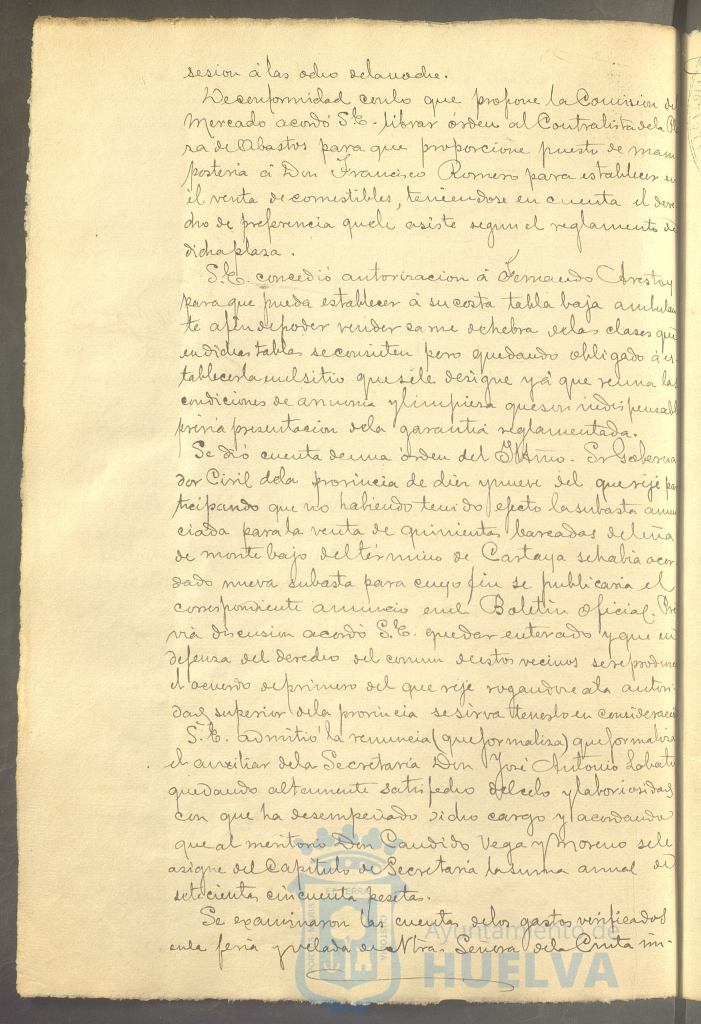 sesion á las ocho dela noche.
De conformidad conlo que propone la Comision de
Mercado acordó S.E. librar órden al Contratista dela Pla
za de Abastos para que proporcione puesto de mam
posteria á Don Francisco Romero para establecer en
él venta de comestibles, teniendose en cuenta el dere
cho de preferencia quele asiste segun el reglamento de
dicha plaza.
S.E. concedió autorizacion á Fernando Arestoy
para que pueda establecer á su costa tabla baja ambulan
te afin depoder vender carne de hebra delas clases que
en dichas tablas se consienten pero quedando obligado á es
tablecerla en el sitio que séle designe y á que reuna las
condiciones de armonia y limpieza que son indispensabl
prévia presentacion dela garantia reglamentada.
Se dió cuenta de una órden del Iltmo. Sr Goberna
dor Civil dela provincia de diez y nueve del que rije par
ticipando que no habiendo tenido efecto la subasta anun
ciada para la venta de quinientas barcadas de leña
de monte bajo del término de Cartaya se habia acor
dado nueva subasta para cuyo fin se publicaria el
correspondiente anuncio en el Boletin Oficial. Pre
via discusion acordó S.E. quedar enterado y que en
defensa del derecho del comun de estos vecinos se reproduzca
el acuerdo de primero del que rije rogandose ala autori-
dad superior dela provincia se sirva tenerlo en consideracion
S.E. admitió la renuncia (que formaliza) que formaliza
el auxiliar dela Secretaria Don José Antonio Lobato
quedando altamente satisfecho del celo y laboriosidad
con que ha desempeñado dicho cargo y acordando
que al meritorio Don Candido Vega y Moreno se le
asigne del Capitulo de Secretaria la suma anual de
setecientas cincuenta pesetas.
Se examinaron las cuentas delos gastos verificados
en la feria y velada de Ntra. Señora dela Cinta im-
Ayuntamiento de
HUELVA